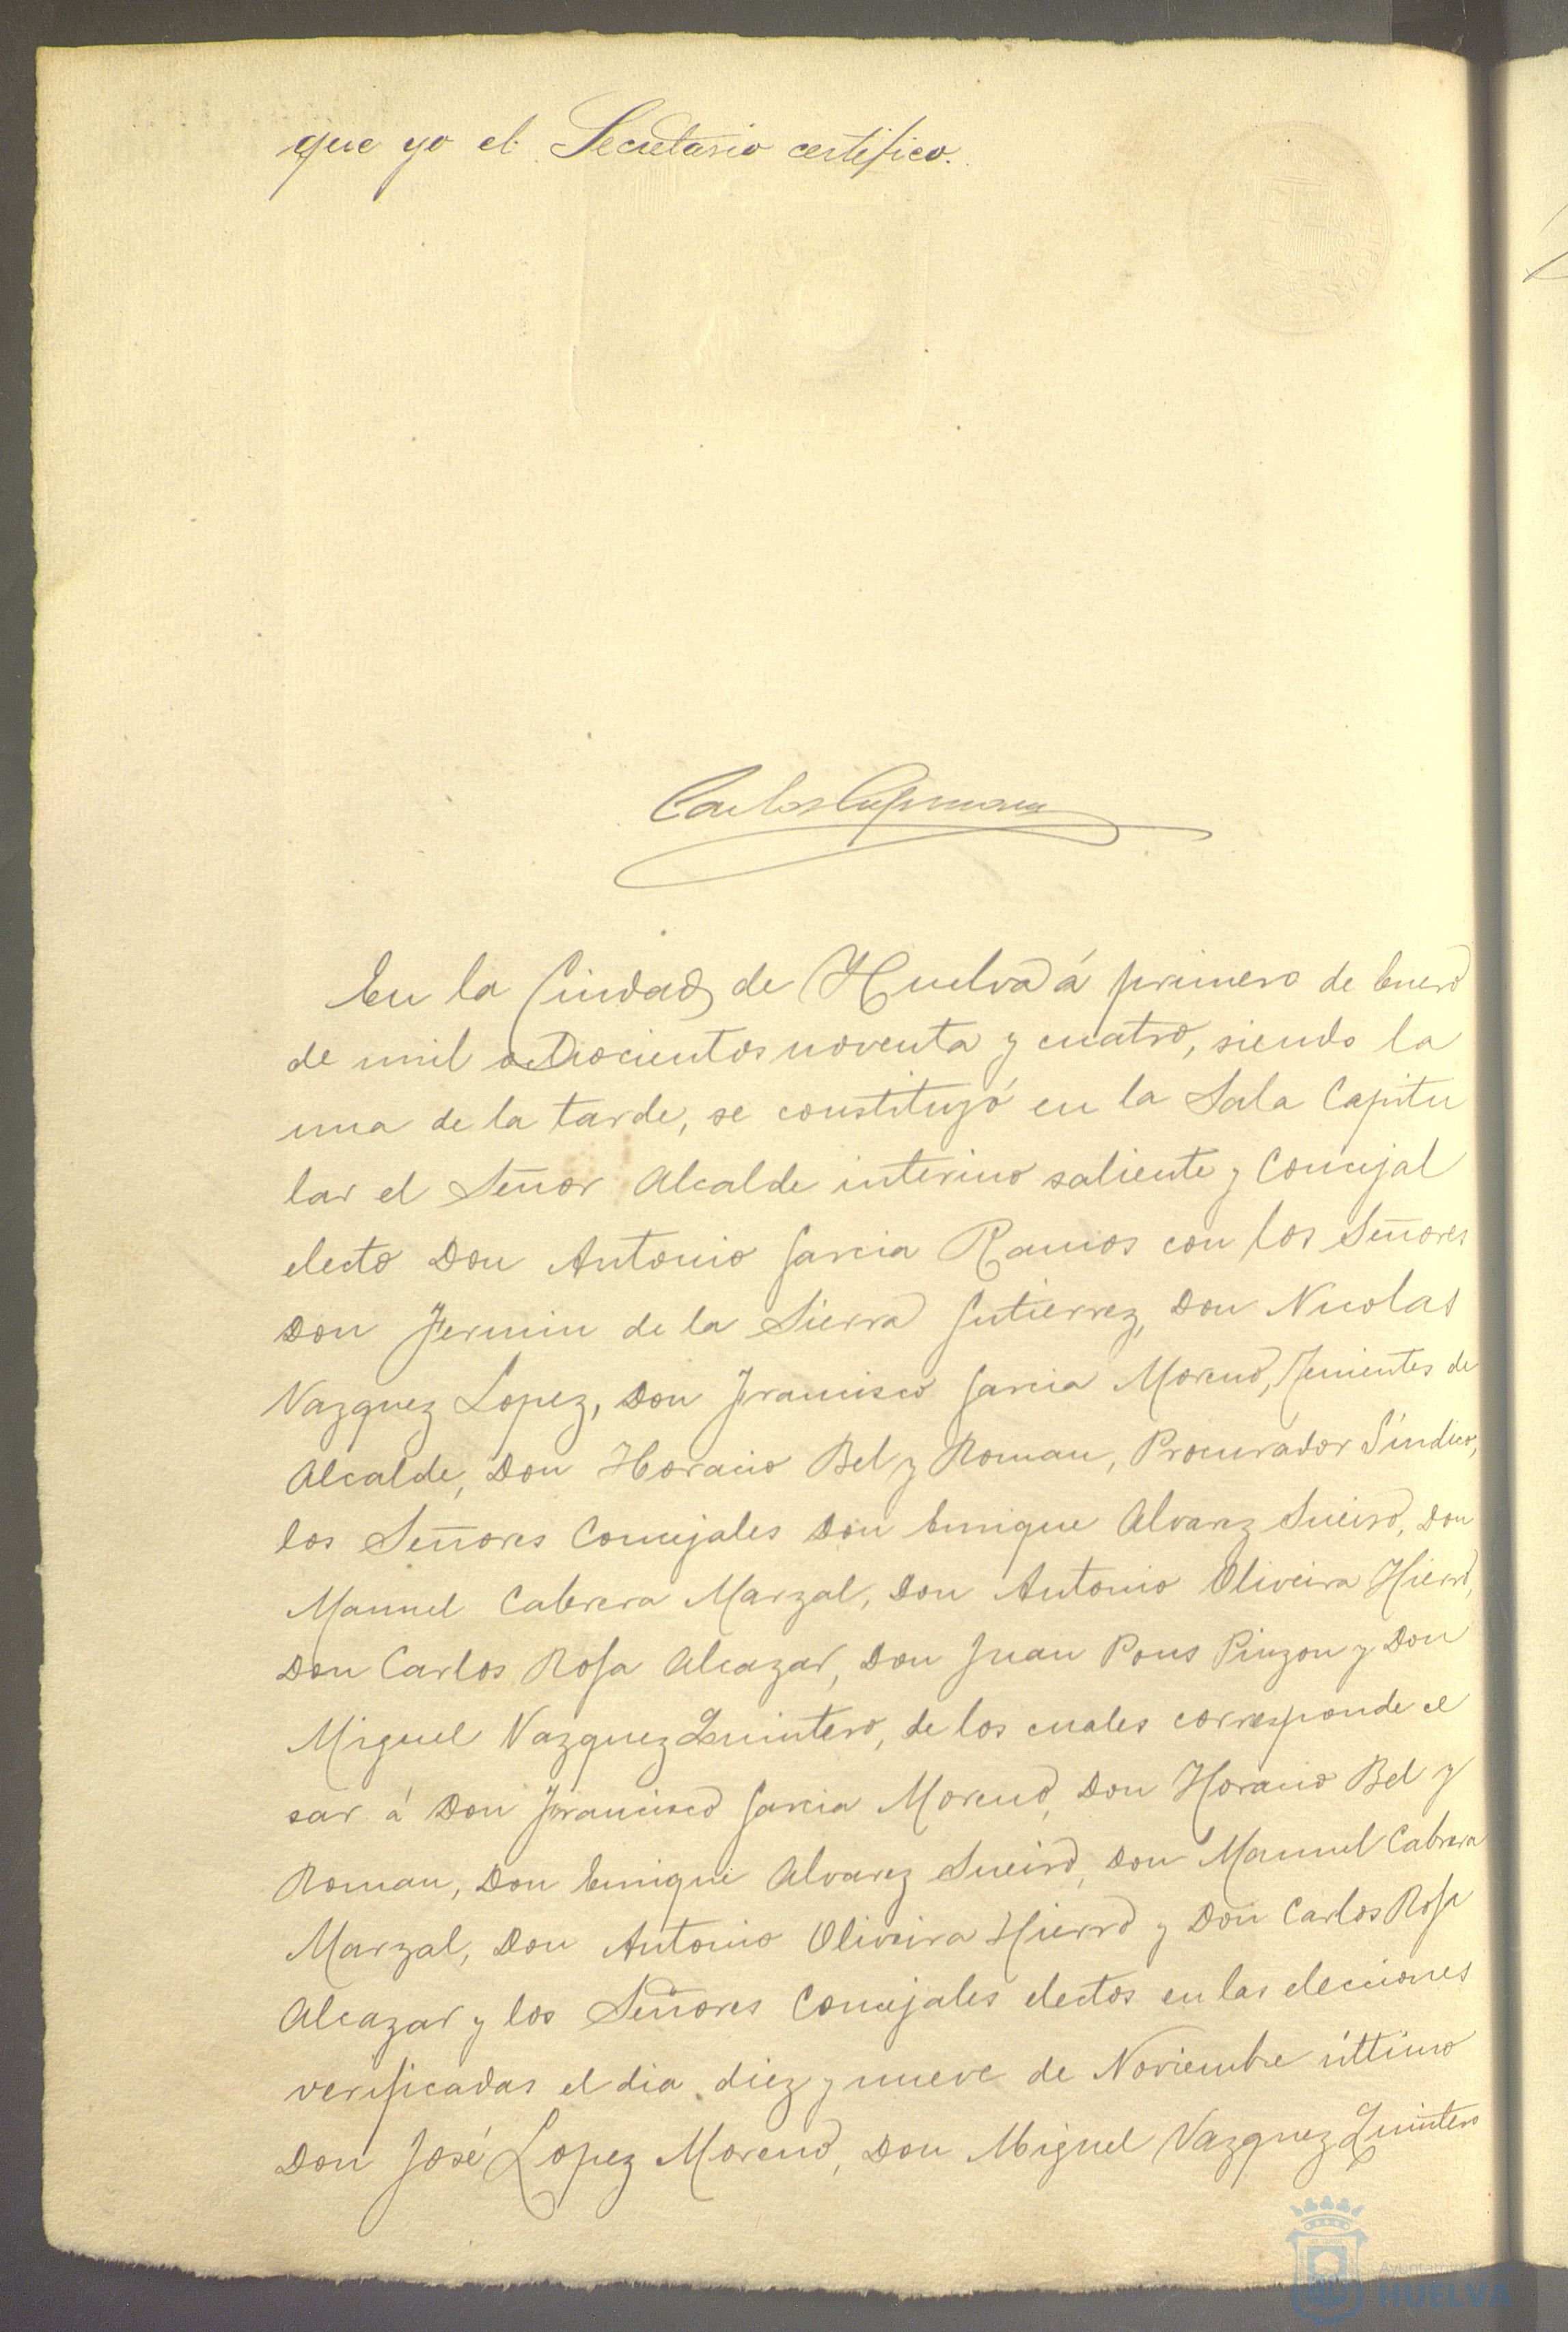 que yo el Secretario certifico.
Carlos
En la Ciudad de Huelva á primero de Enero
de mil ochocientos noventa y cuatro, siendo la
una de la tarde, se constituyó en la Sala Capitu
lar el Señor Alcalde interino saliente y Concejal
electo Don Antonio Garcia Ramos con los Señores
Don Fermin de la Sierra Gutierrez, Don Nicolas
Vazquez Lopez, Don Francisco Garcia Moreno, Tenientes de
Alcalde, Don Horacio Bel y Roman, Procurador Síndico,
los Señores Concejales Don Enrique Alvarez Sueiro, Don
Manuel Cabrera Marzal, Don Antonio Oliveira Hierro,
Don Carlos Rosa Alcazar, Don Juan Pons Pinzon y Don
Miguel Vazquez Quintero, de los cuales corresponde ce
sar á Don Francisco Garcia Moreno, Don Horacio Bel y
Roman, Don Enrique Alvarez Sueiro, Don Manuel Cabrera
Marzal, Don Antonio Oliveira Hierro y Don Carlos Rosa
Alcazar y los Señores Concejales electos en las elecciones
verificadas el dia diez y nueve de Noviembre último
Don José Lopez Moreno, Don Miguel Vazquez Quintero
HUELVA